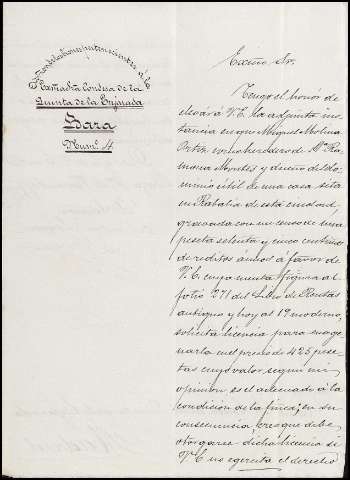 Admón de los bienes pertenecientes á la
Excma Sra Condesa de la
Quinta de la Enjarada
Zara
Num.º 4
Excmo Sr.
Tengo el honor de
elevar á V.E. la adjunta ins-
tancia en que Miguel Molina
Ortiz como heredero de Mª Ra-
mona Montes y dueño del do-
minio util de una casa sita
en Rabalia de esta ciudad
gravada con un censo de una
peseta setenta y cinco centimos
de reditos anuos á favor de
V.E. cuya cuenta figura al
folio 271 del Libro de Rentas
antiguo y hoy al 19 moderno,
solicita licencia para enage-
narla en el precio de 425 pese-
tas cuyo valor segun mi
opinion es el adecuado á la
condicion de la finca; en su
consecuencia creo que debe
otorgarse dicha licencia si
V.E. no egercita el derecho